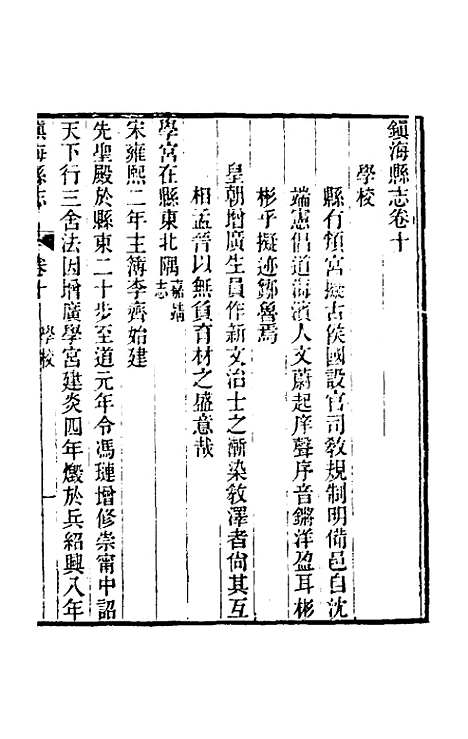 鎮海縣志卷十
學校
縣有頖宮擬古侯國設官司教規制明備邑自沈
端憲倡道海濱人文蔚起庠聲序音鏘洋盈耳彬
彬乎擬迹鄒魯焉
皇朝增廣生員作新文治士之漸染敎澤者尙其互
相孟晉以無負育材之盛意哉
學宮在縣東北隅嘉靖志
宋雍熙二年主簿李齊始建
先聖殿於縣東二十步至道元年令馮璉增修崇甯中詔
天下行三舍法因增廣學宮建炎四年燬於兵紹興八年
鎮海縣志
卷十
學校
一